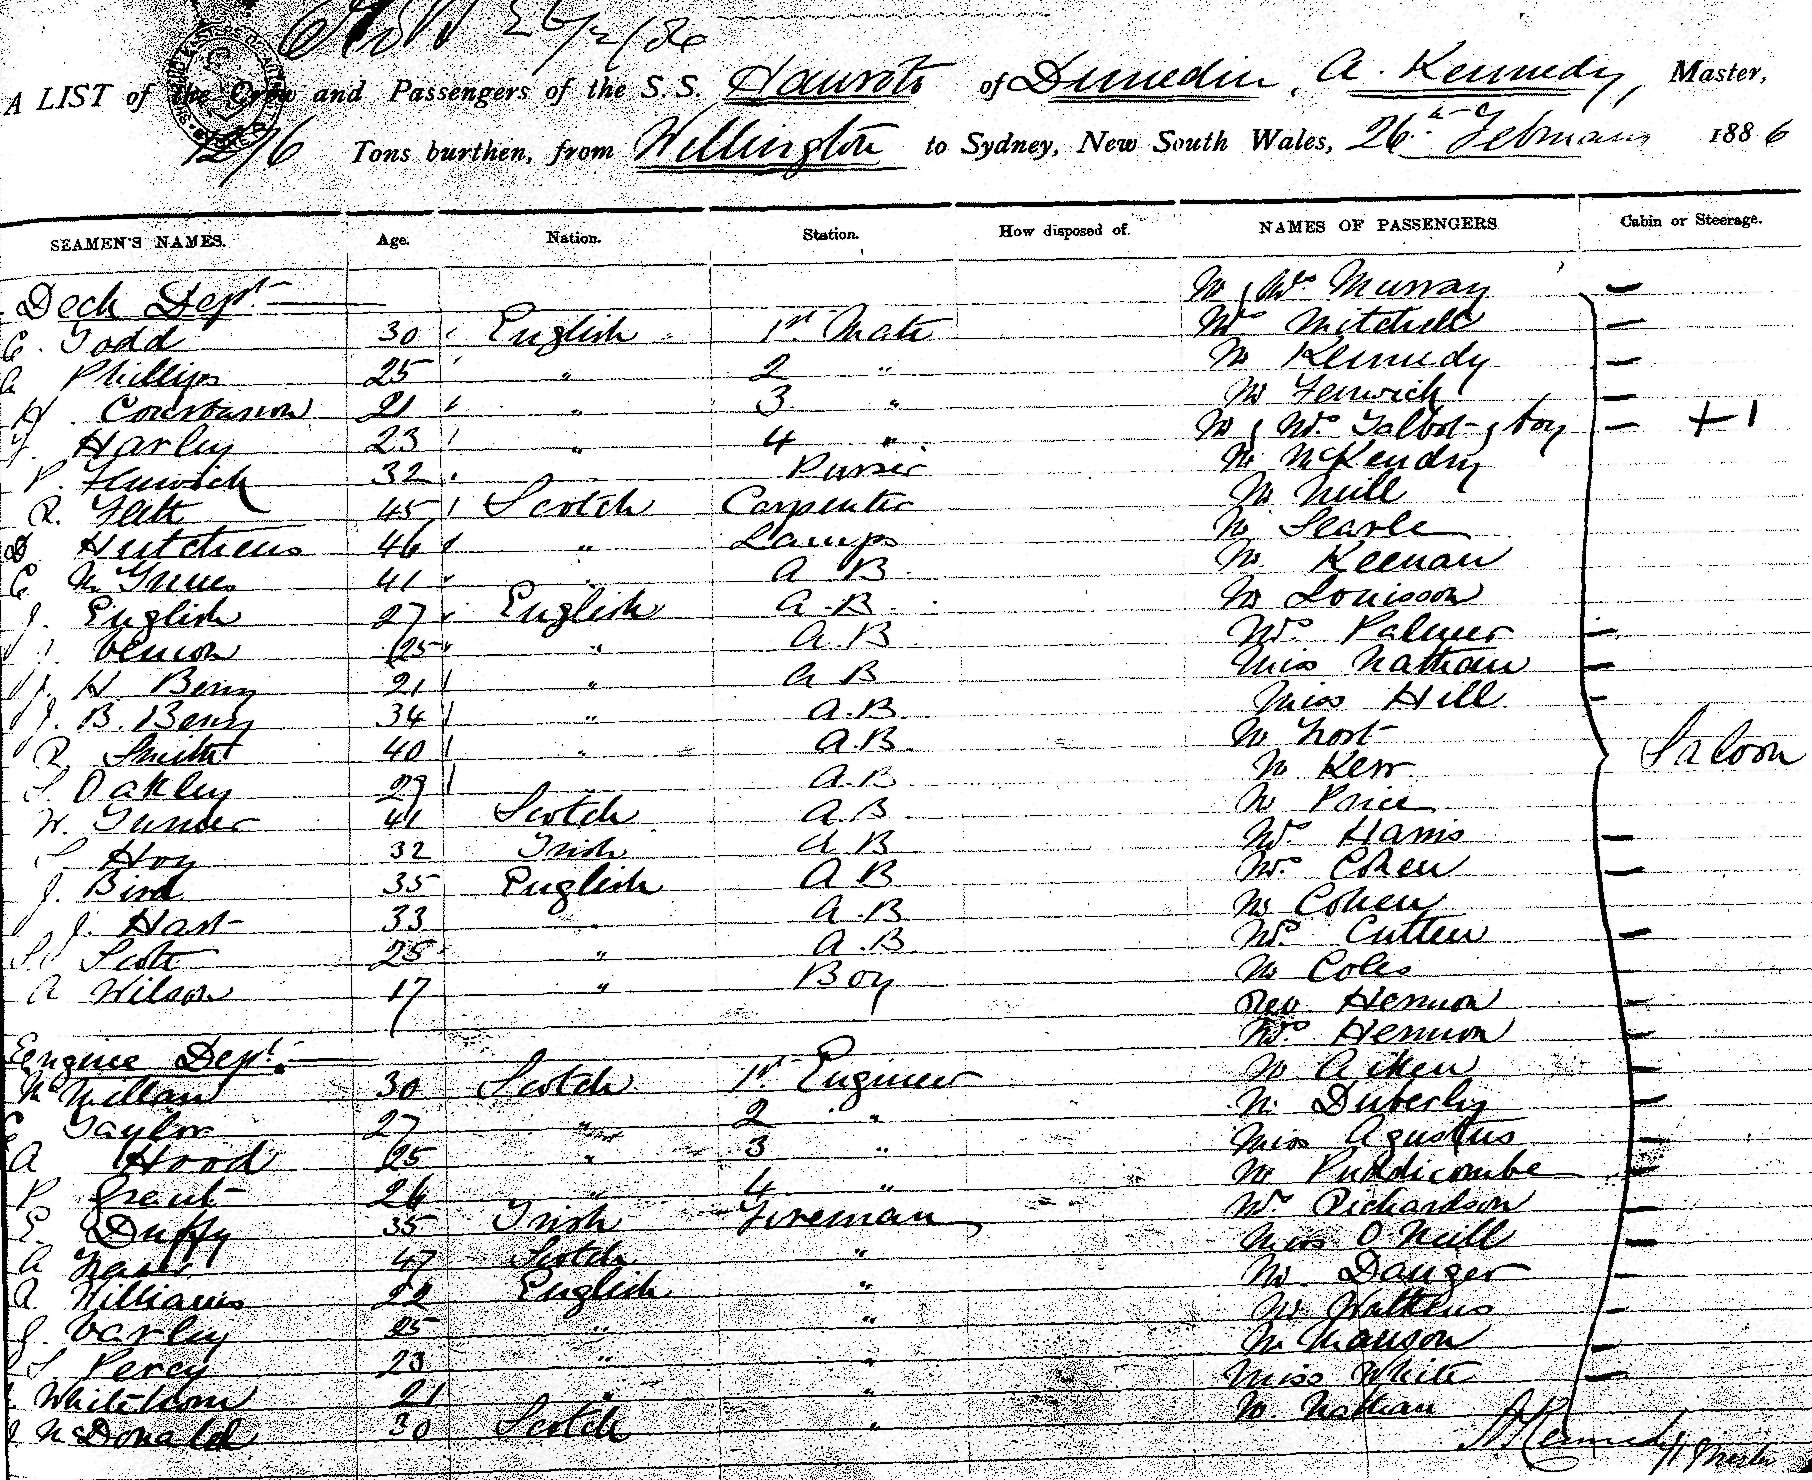 26/2/86
A LIST of the Crew and Passengers of the S.S. Hauroto of Dunedin, A. Kennedy, Master,
1276 Tons burthen, from Wellington to Sydney, New South Wales, 26th February 1886
SEAMEN'S NAMES. Age. Nation. Station. How disposed of. NAMES OF PASSENGERS. Cabin or Steerage.
Deck Dept. Mr & Mrs Murray —
E. Todd 30 English 1st Mate Mrs Mitchell —
A Phillips 25 " 2 " Mr Kennedy —
H 21 " 3 " Mr Fenwick —
Harley 23 " 4 " Mr & Mrs Talbot & boy — + 1
P. Fenwick 32 Purser Mr McKendry
R. 45 Scotch Carpenter Mr Neill
Hutchens 46 " Lamps Mr Searle
C 41 " A B Mr Keenan
J. English 27 English A.B Mr Louisson
Vernon 25 " A.B Mrs Palmer —
J. H Berry 21 " A B Miss Nathan —
J. B. Berry 34 " A.B Miss Hill —
R. Smith 40 " A.B. Mr
S. Oakley 29 A.B Mr Kerr
W. 41 Scotch A.B Mr Price Saloon
Hoy 32 Irish A B Mrs Harris —
J. Bird 35 English A B Mrs Cohen —
J. Hast 33 " A.B Mr Cohen
Scott 25 " A.B Mrs Cutten —
A Wilson 17 " Boy Mr Coles
Rev Hermon —
Mrs Hermon —
Eengine Dept. Mr Aiken —
McMillan 30 Scotch 1st Engineer Mr Duberly —
E Taylor 27 " 2 " Miss Agustus —
A Hood 25 " 3 " Mr Puddicombe —
P Grant 26 " 4 " Mrs Richardson —
E. Duffy 35 Irish Fireman Miss O Neill —
A 47 Scotch " Mr Danger —
A. Williams 22 English " Mr Watkins —
J. Varley 25 " " Mr Manson —
S Percy 23 " " Miss White —
Whitethorn 21 " " Mr Nathan
J McDonald 30 Scotch " A Kennedy Master